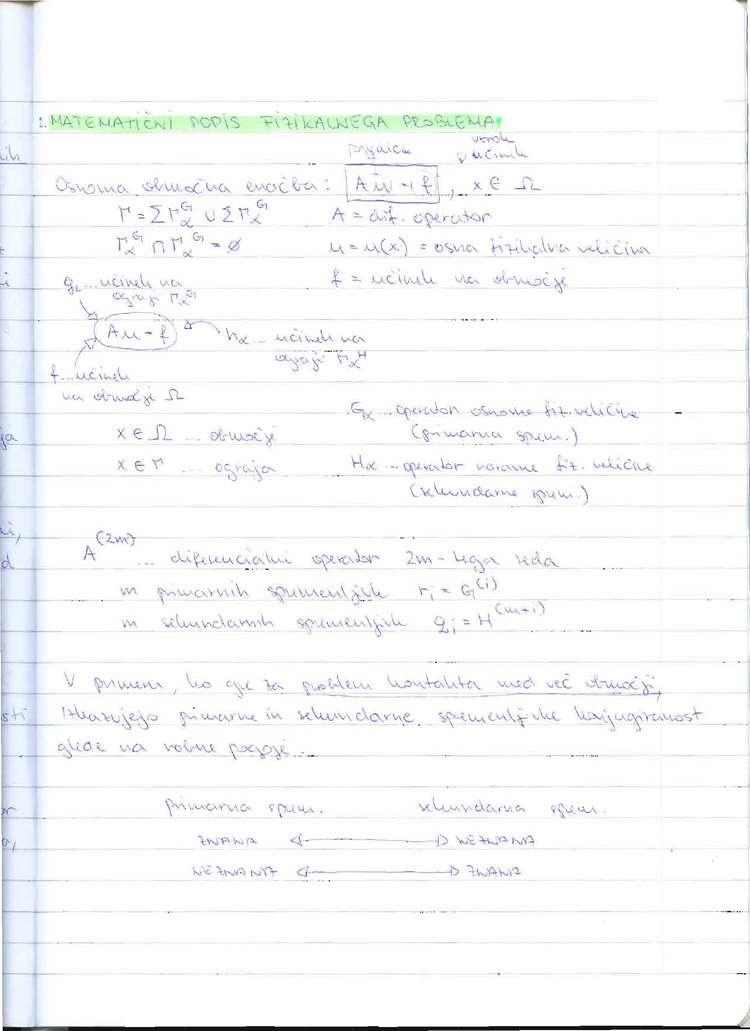 2. MATEMATIČNI POPIS FIZIKALNEGA PROBLEMA
posledica vzrok učinek
Osnovna območna enačba: Au = f, x ∈ Ω
Γ = ΣΓαG ∪ ΣΓαG A = dif. operator
ΓαG ∩ ΓαG = ∅ u = u(x) = osna fizikalna veličina
f = učinek na območje
učinek na
ograji ΓαG
Au = f hα ... učinek na
ograji ΓαH
f ... učinek
na območje Ω
Gα ... operator osnovne fiz. veličine
x ∈ Ω ... območje (primarna sprem.)
x ∈ Γ ... ograja Hα ... operator naravne fiz. veličine
(sekundarne sprem.)
A(2m) ... diferencialni operator 2m-tega reda
m primarnih spremenljivk ri = G(i)
m sekundarnih spremenljivk qi = H(m+i)
V primeru, ko gre za problem kontakta med več območji,
izkazujejo primarne in sekundarne spremenljivke konjugiranost
glede na robne pogoje.
primarna sprem. sekundarna sprem.
ZNANA ◁——▷ NEZNANA
NEZNANA ◁——▷ ZNANA